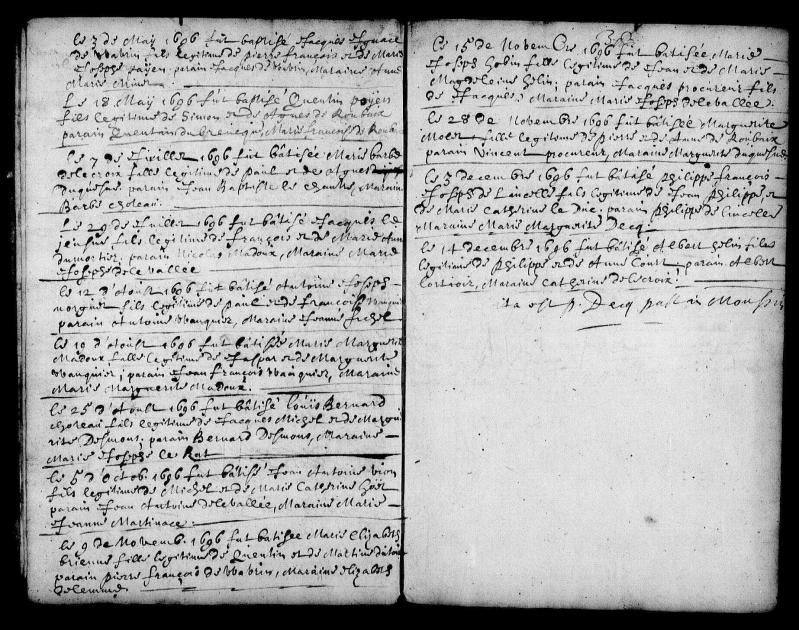 le 3 de May 1696 fut baptisé Jacques Ignace
de Wavrin fils legitime de pierre françois et de Marie
Joseph payen, parain Jacques de Wavrin, Maraine Anne
Marie
Le 18 May 1696 fut baptisé Quentin poyen
fils legitime de Simon et de Agnes de Roubaix
parain Quentin du Marie francoise de Roub
le 7 de Juillet 1696 fut bâtisée Marie barbe
delecroix fille legitime de paul et de Agnes
Duquesne parain Jean Baptiste le Maraine
Barbe choteau.
le 29 de Juillet 1696 fut bâtisé Jacques le
fils legitime de françois et de Marie Anne
dumortier, parain Nicolas Madoux, Maraine Marie
Joseph de le vallée
le 12 d'Aoust 1696 fut bâtisé Antoine Joseph
fils legitime de paul et de francoise
parain Antoine Wauquier, Maraine Jeanne
le 19 d'aoust 1696 fut bâtisée Marie Margueritte
Madoux fille legitime de Jaspar et de Margueritte
Wauquier; parain Jean françois Wauquier, Maraine
Marie Margueritte Madoux.
le 25 d'Aoust 1696 fut bâtisé Louis Bernard
choteau fils legitime de Jacques Michel et de Margue
rite Desmons, parain Bernard Desmons, Maraine
Marie Joseph le Rat
le 5 d'Octob. 1696 fut bâtisé Jean Antoine vion
fils legitime de Michel et de Marie Catherine
parain Jean Antoine delevallée, Maraine Marie
Jeanne Martinace.
le 9 de Novemb. 1696 fut batisée Marie Elizabeth
brienne fille legitime de Quentin et de Martine
parain pierre françois de Wavrin, Maraine elizabeth
delemme
le 15 de Novembre 1696 fut bâtisée Marie
Joseph fille legitime de Jean et de Marie
Magdeleine helin; parain Jacques procureur fils
de Jacques, Maraine Marie Joseph delevallée.
le 28 de Novembre 1696 fut bâtisée Marguerite
fille legitime de pierre et de Anne de Roubaix
parain Vincent procureur, Maraine Marguerite duquesne
le 3 decembre 1696 fut bâtisé philippe françois
Joseph de Lincelle fils legitime de Jean philippe et
de Marie Catherine le Duc, parain philippe de lincelles
Maraine Marie Marguerite Decq.
le 14 decembre 1696 fut bâtisé Albert helin fils
legitime de philippe et de Anne Court parain Albert
Maraine Catherine delecroix
ita est p. Decq past in